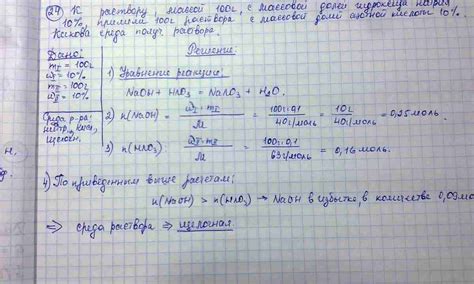 (24) К раствору массой 100г, с массовой долей гидроксида натрия
10%, прилили 100г раствора, с массовой долей азотной кислоты 10%.
Какова среда получ. раствора.
Дано:
m₁ = 100г
ω₁ = 10%
m₂ = 100г
ω₂ = 10%
Среда р-ра:
нейтр., кисл.,
щелочн.
Решение:
1) Уравнение реакции:
NaOH + HNO₃ = NaNO₃ + H₂O.
2) n(NaOH) = ω₁·m₁ / M = 100г·0,1 / 40г/моль = 10г / 40г/моль = 0,25моль.
3) n(HNO₃) = ω₂·m₂ / M = 100г·0,1 / 63г/моль = 0,16моль.
4) По приведенным выше расчетам:
n(NaOH) > n(HNO₃) → NaOH в избытке, в количестве 0,09мо
⇒ среда раствора ⇒ щелочная.